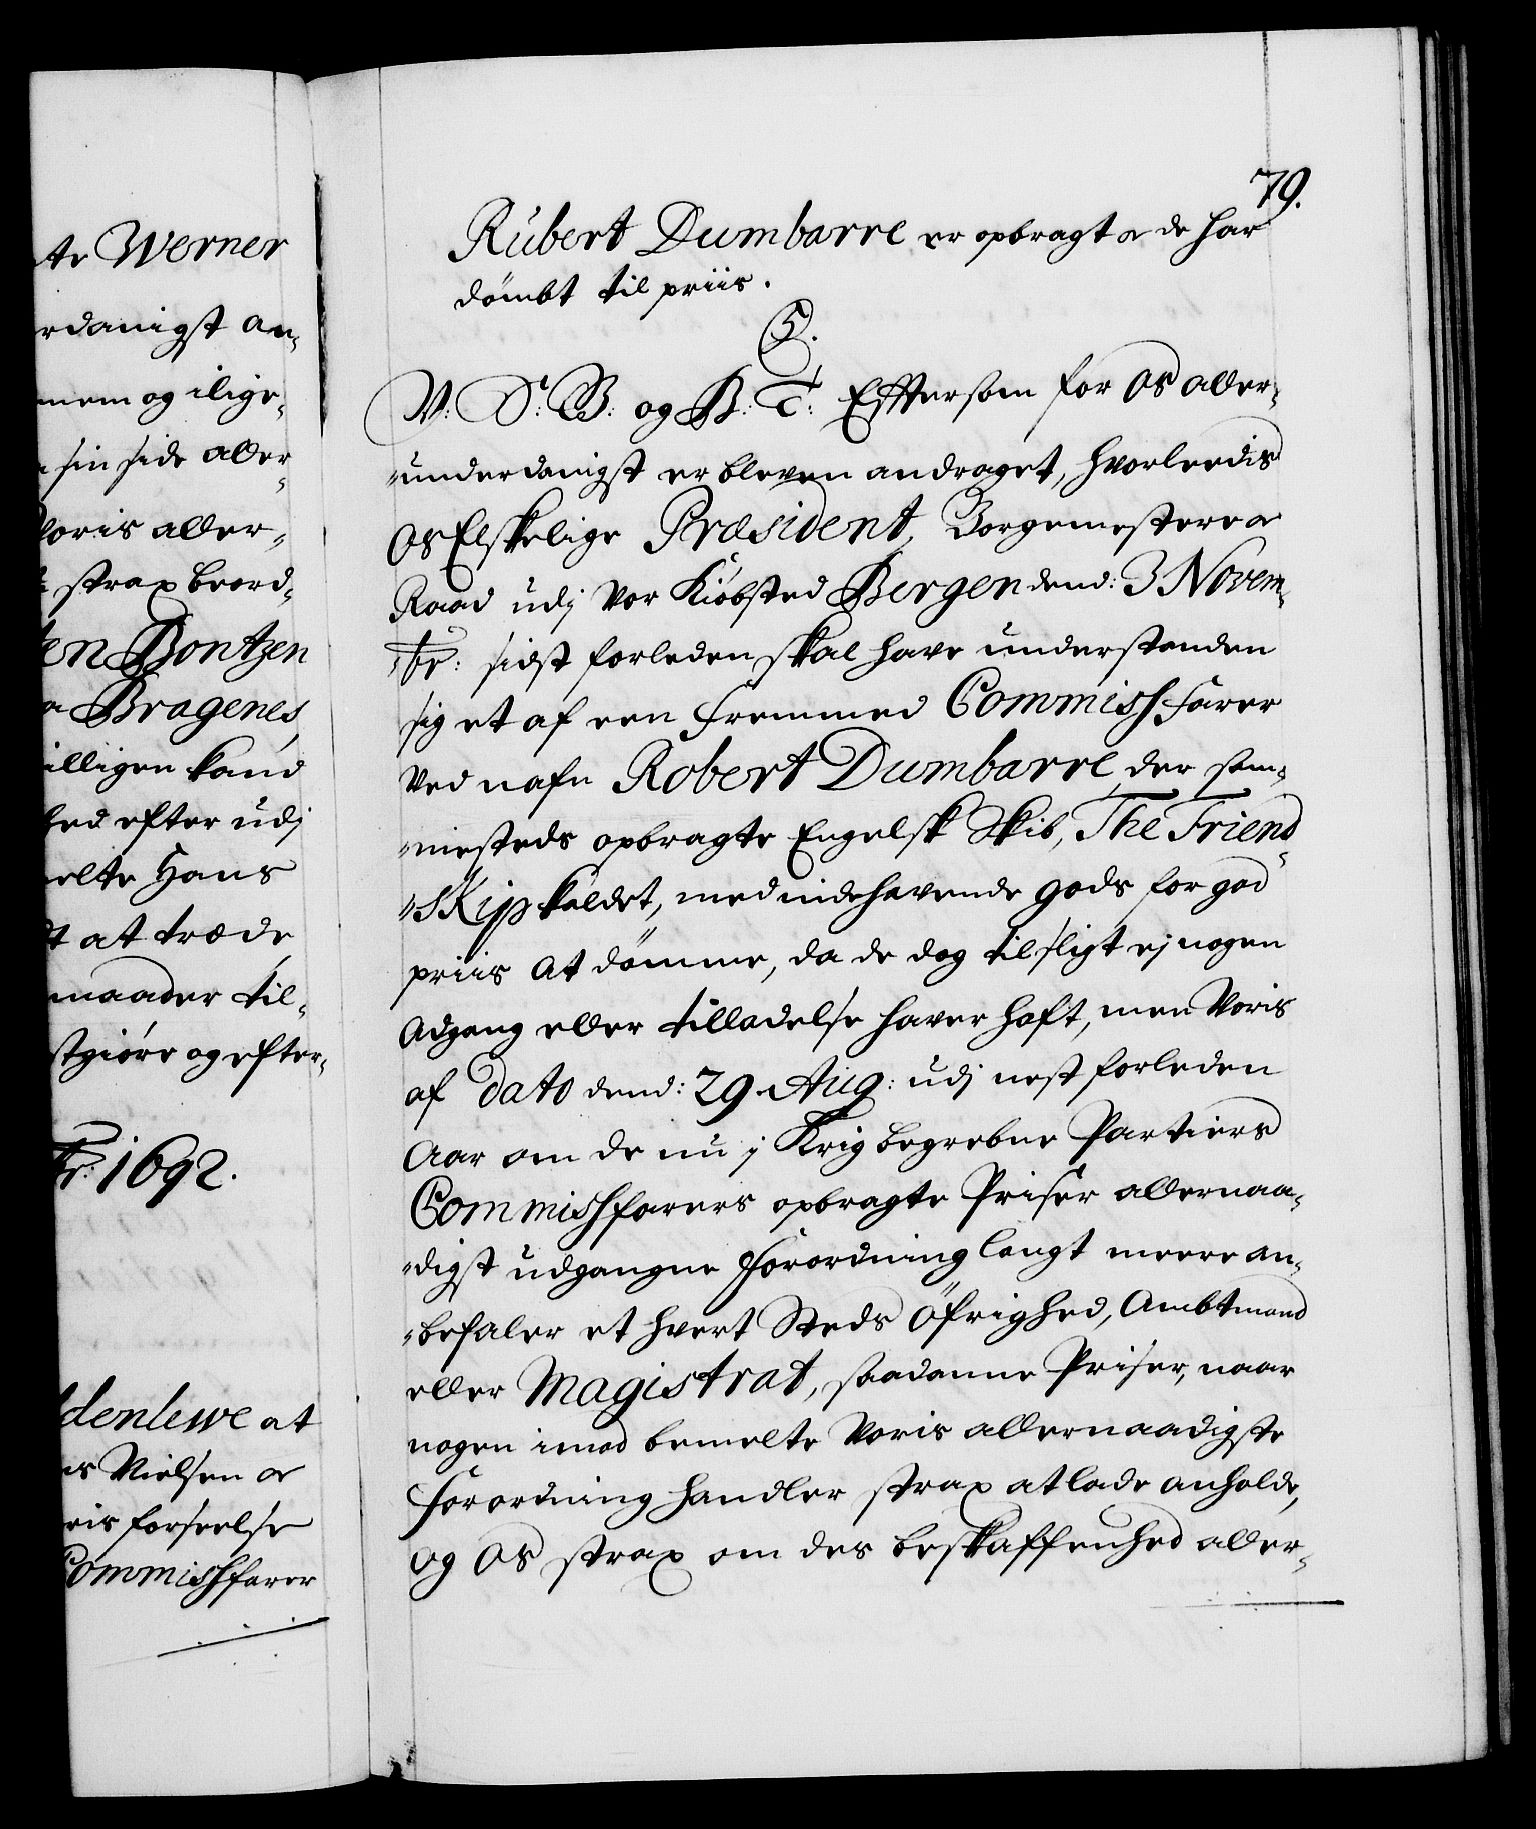 te Werner
rdanigst an-
mem og ilige-
sin side aller-
Voris aller-
strax beord-
en Bontzen
a Bragenes
illigen kand
hed efter udj
melte Hans
t at træde
maader til-
stgiöre og efter-
br: 1692.
ldenlewe at
is Nielsen oc
eis forseelse
Commishfarer
79.
Rubert Dumbarre er opbragt oc de har
dömbt til priis.
5.
V: S: B: og B: T: Efftersom for Os aller-
underdanigst er bleven andraget, hvorleedis
Os Elskelige Præsident, Borgemestere oc
Raad udj Vor Kiöbsted Bergen dend: 3 Novem-
br: sidst forleden, skal have understanden
sig et af een fremmed Commishfarer
Ved nafn Robert Dumbarre, der sam-
mesteds opbragte Engelsk Skib, The Friend-
skip kaldet, med indehavende gods for god
priis at dömme, da de dog til sligt ej nogen
Adgang eller tilladelse haver haft, men Voris
af Dato dend: 29 Aug: udj nest forleden
Aar om de nu j Krig begrebne Partiers
Commishfarers opbragte Priser allernaa-
digst udgangne Forordning langt meere an-
befaler et hvert Steds Öfrighed, Ambtmand
eller Magistrat, saadanne Priser, naar
nogen imod bemelte Voris allernaadigste
Forordning handler, strax at lade anholde,
og Os strax om des beskaffenhed aller-